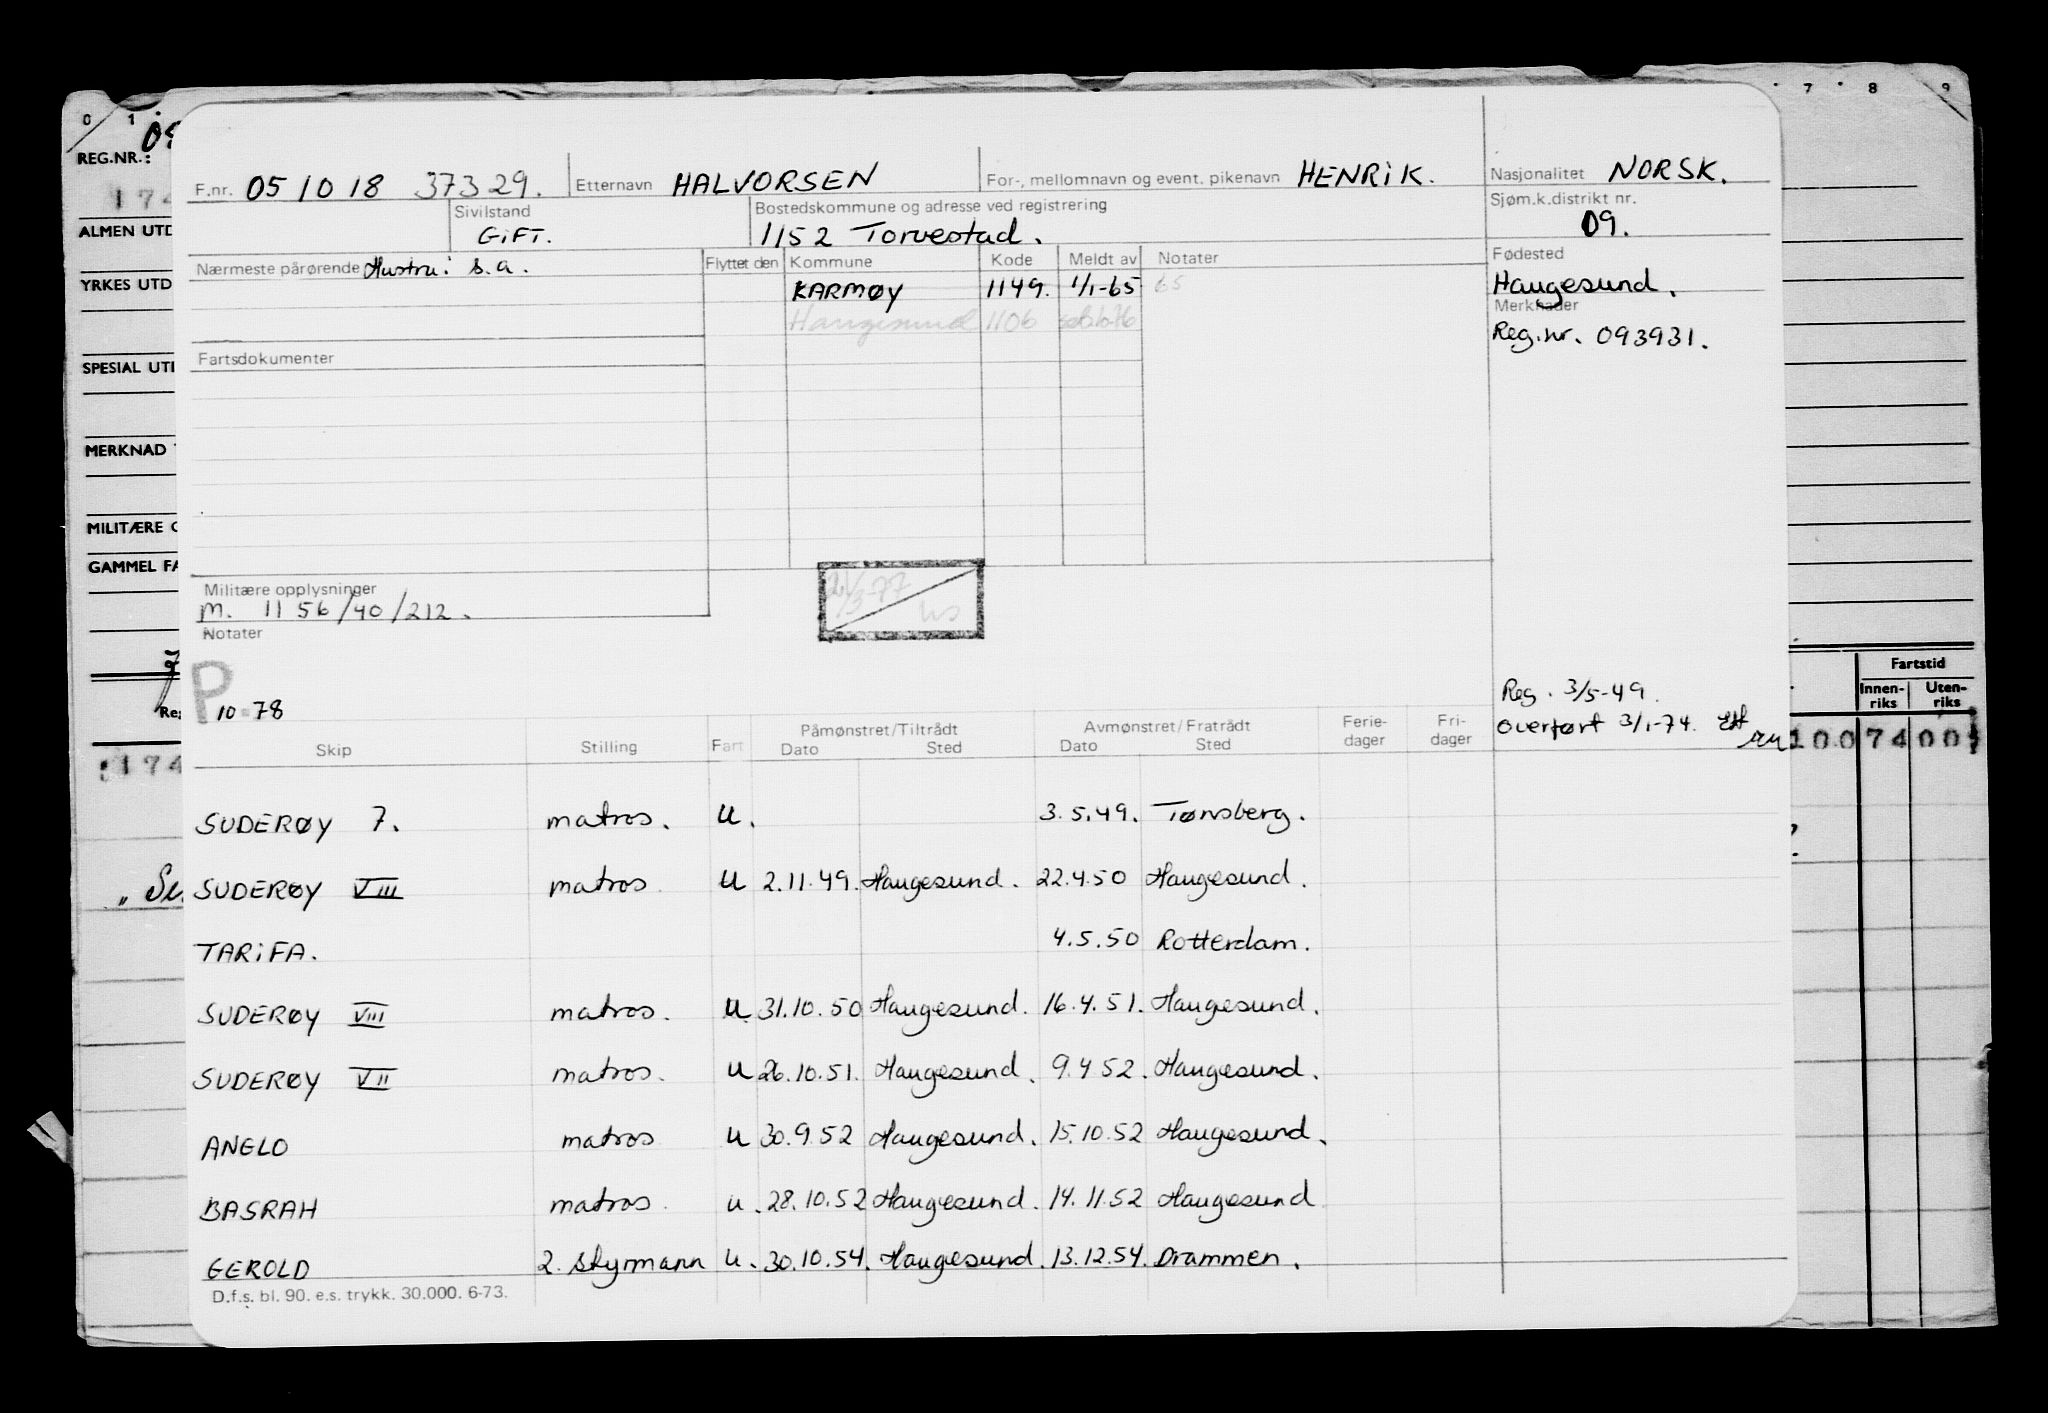 0 1 7 8 9
REG.NR.:
F.nr. 051018 37329. Etternavn HALVORSEN For-, mellomnavn og event. pikenavn HENRIK. Nasjonalitet NORSK.
174
Sivilstand GIFT. Bostedskommune og adresse ved registrering 1152 Torvestad. Sjøm.k.distrikt nr. 09.
ALMEN UTD
Nærmeste pårørende Hustru: s.a. Flyttet den Kommune Kode Meldt av Notater Fødested
YRKES UTD
KARMØY 1149. 1/1-65 65 Haugesund.
Haugesund 1106 Merknader
Reg.nr. 093931.
SPESIAL UT
Fartsdokumenter
MERKNAD
MILITÆRE
GAMMEL FA
Militære opplysninger
m. 1156/40/212.
21/3-77
Notater
P 10-78
Reg. 3/5-49.
Overført 3/1-74.
Fartstid
Innen-riks Uten-riks
1007400
174
Skip Stilling Fart Påmønstret/Tiltrådt Dato Sted Avmønstret/Fratrådt Dato Sted Ferie-dager Fri-dager
SUDERØY 7. matros. U. 3.5.49. Tønsberg.
SUDERØY VIII matros U 2.11.49. Haugesund. 22.4.50 Haugesund.
TARIFA. 4.5.50 Rotterdam.
SUDERØY VIII matros. U 31.10.50 Haugesund. 16.4.51. Haugesund.
SUDERØY VII matros. U 26.10.51. Haugesund. 9.4 52. Haugesund.
ANGLO matros U 30.9.52 Haugesund. 15.10.52 Haugesund.
BASRAH matros. u. 28.10.52 Haugesund. 14.11.52 Haugesund
GEROLD 2. styrmann U. 30.10.54. Haugesund. 13.12.54. Drammen.
D.f.s. bl. 90. e.s. trykk. 30.000. 6-73.